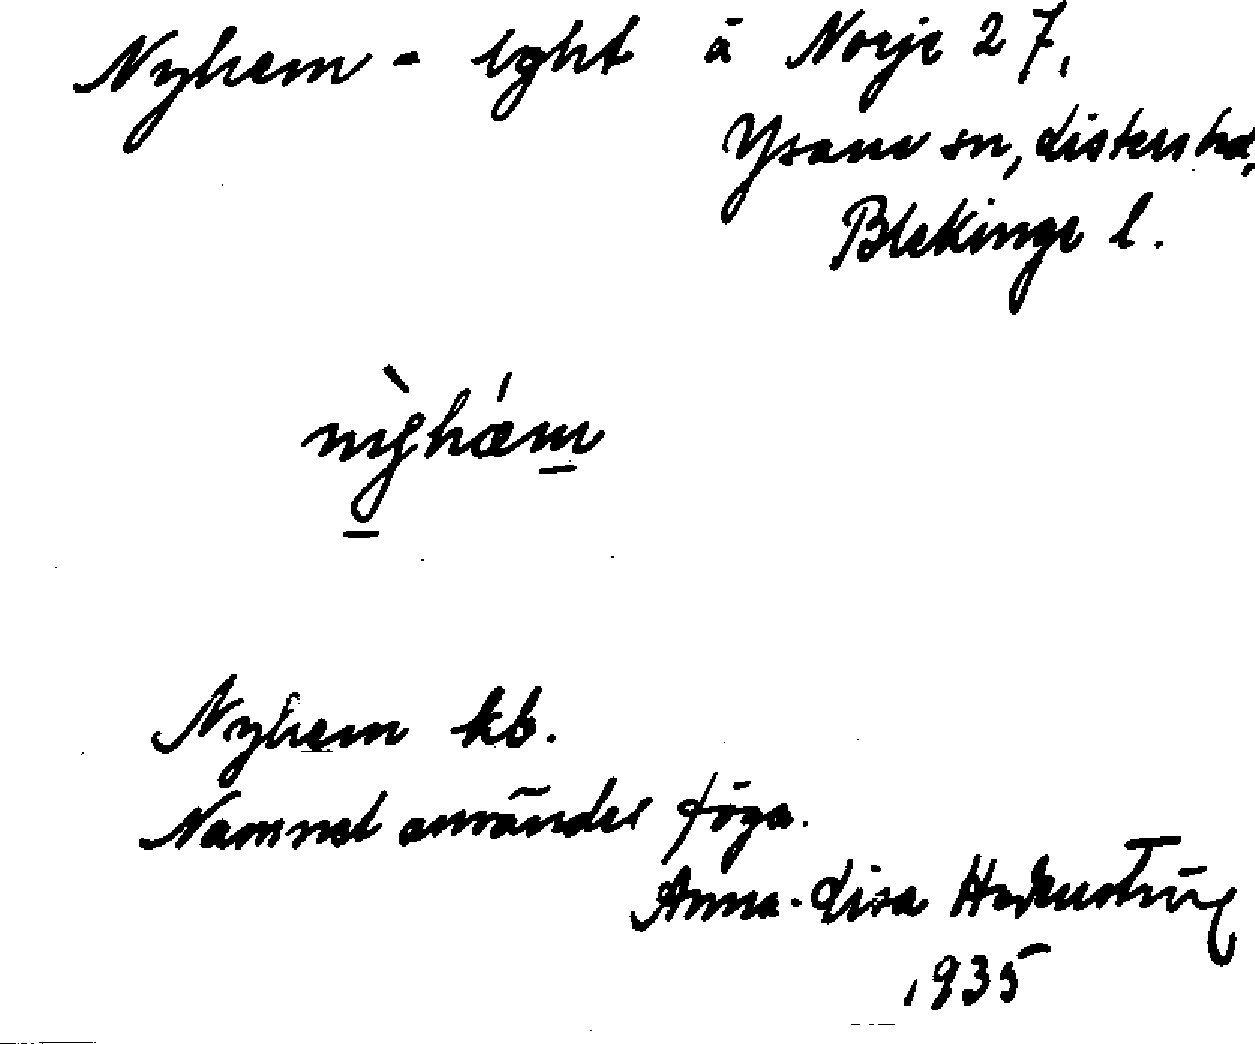 Nyhem - lght å Norje 27,
Ysane sn, Listers hd,
Blekinge l.
nỳhǽm
Nyhem kb.
Namnet användes föga.
Anna-Lisa
1935